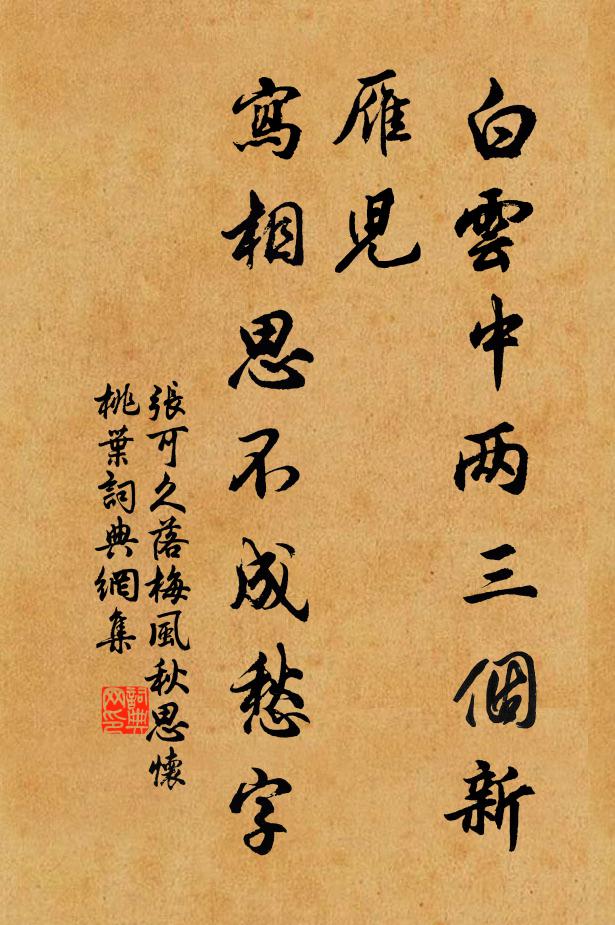 白雲中两三個新
雁児
寫相思不成愁字
張可久落梅風秋思懷
桃葉詞典網集
詞典
网印